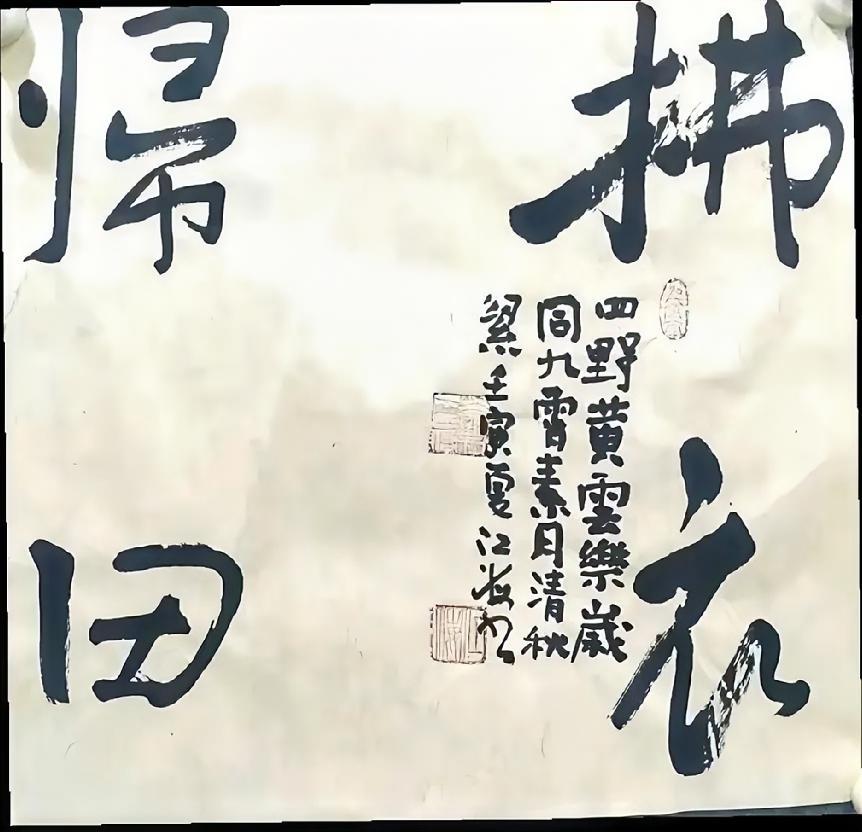 拂衣
歸田
四野黃雲樂歲
同九霄素月清秋
壬寅夏江海